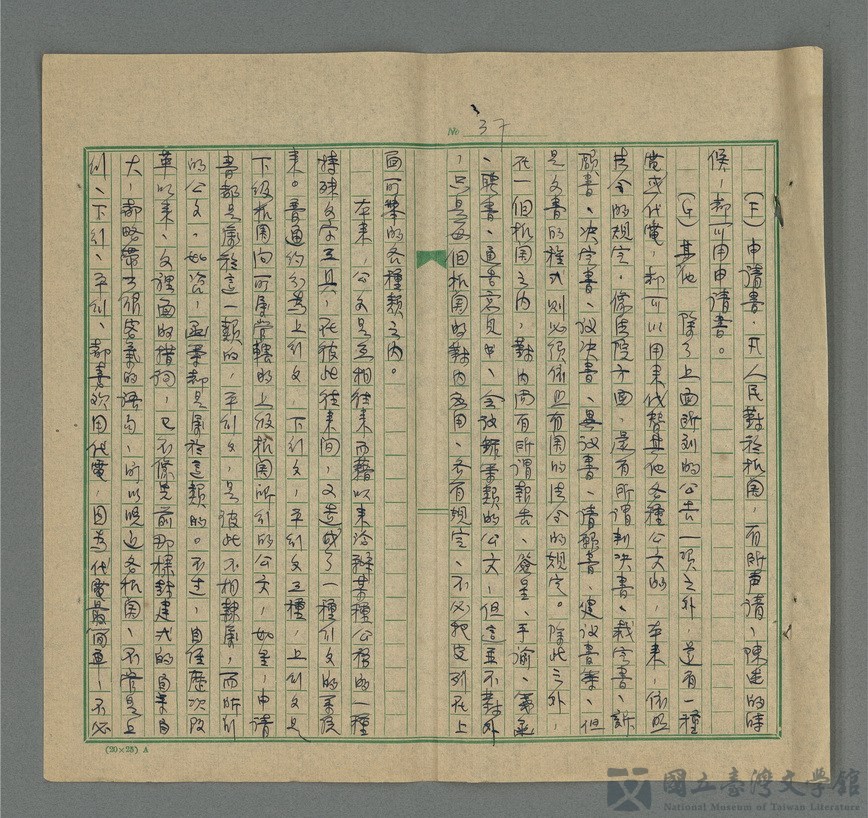 No 37
(F) 申請書,凡人民對於机関,有所声請、陳述的時
候,都可用申請書。
(G) 其他 除了上面所列的公告一項之外,還有一種
電或代電,都可以用来代替其他各種公文的,本来,依照
法令的規定,像法院方面,還有所謂判決書、裁定書、訴
願書、決定書、議決書、異議書、請願書、建議書等,但
是文書的程式則必須依照有関的法令的規定。除此之外,
在一個机関之內,對內尚有所謂報告、簽呈、手諭、箋函
、聘書、通告意見書、会議録等類的公文,但這並不對外
,只是每個机関的對內应用,各有規定,不必把它列在上
面所举的各種類之內。
本来,公文是互相往来而藉以来洽辦某種公務的一種
特殊文字工具,在彼此往来間,又造成了一種行文的系統
来。普通約分為上行文,下行文,平行文三種,上行文是
下級机関向所屬管轄的上級机関所行的公文,如呈,申請
書都是屬於這一類的,平行文,是彼此不相隸屬,而所行
的公文,如咨,函等都是屬於這類的。不过,自經歷次改
革以来,文裡面的措詞,已不像先前那樣封建式的自来自
大,都略帶了很客氣的語句,所以晚近各机関,不管是上
行、下行、平行、都喜欢用代電,因為代電最簡单,不必
(20×25) A
國立臺灣文學館
National Museum of Taiwan Literature